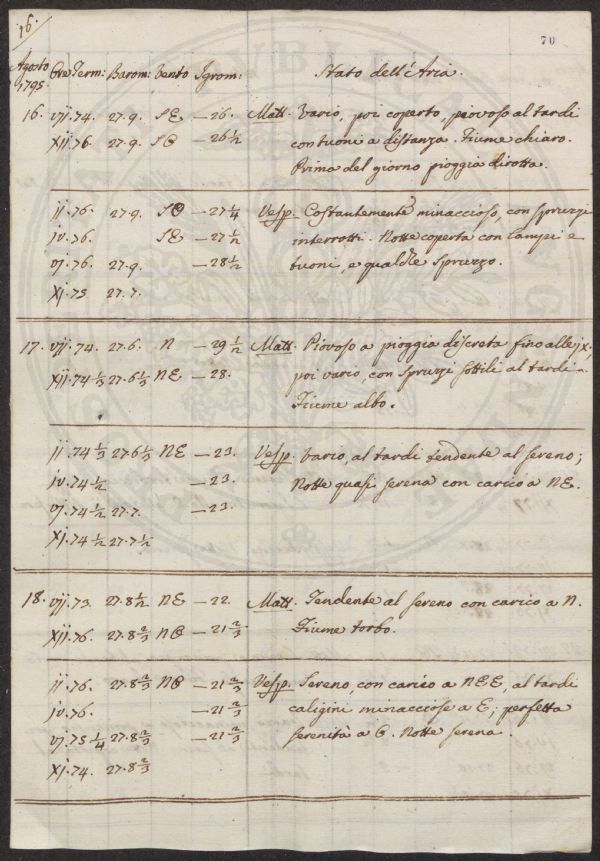 16.
70
Agosto
1795
Ore Term: Barom: Vento Igrom: Stato dell'Aria.
16. vij. 74. 27.9. SE — 26. Matt. Vario, poi coperto, piovoso al tardi
xij. 76. 27.9. SO — 26 1/2 con tuoni a distanza. Fiume chiaro.
Prima del giorno pioggia dirotta.
ij. 76. 27.9. SO — 27 1/4 Vesp. Costantemente minaccioso, con spruzzi
iv. 76. SE — 27 1/2 interrotti. Notte coperta con lampi e
vj. 76. 27.9. — 28 1/2 tuoni, e qualche spruzzo.
xj. 75 27.7.
17. vij. 74. 27.6. N — 29 1/2 Matt. Piovoso a pioggia discreta fino alle ix,
xij. 74 1/3 27.6 1/3 NE — 28. poi vario, con spruzzi sottili al tardi.
Fiume albo.
ij. 74 1/3 27.6 1/3 NE — 23. Vesp. Vario, al tardi tendente al sereno;
iv. 74 1/2 — 23. Notte quasi serena con carico a NE.
vj. 74 1/2 27.7. — 23.
xj. 74 1/2 27.7 1/2
18. vij. 73. 27.8 1/2 NE — 22. Matt. Tendente al sereno con carico a N.
xij. 76. 27.8 2/3 NO — 21 2/3 Fiume torbo.
ij. 76. 27.8 2/3 NO — 21 2/3 Vesp. Sereno, con carico a NEE, al tardi
iv. 76. — 21 2/3 caligini minacciose a E; perfetta
vj. 75 1/4 27.8 2/3 — 21 2/3 serenità a O. Notte serena.
xj. 74. 27.8 2/3